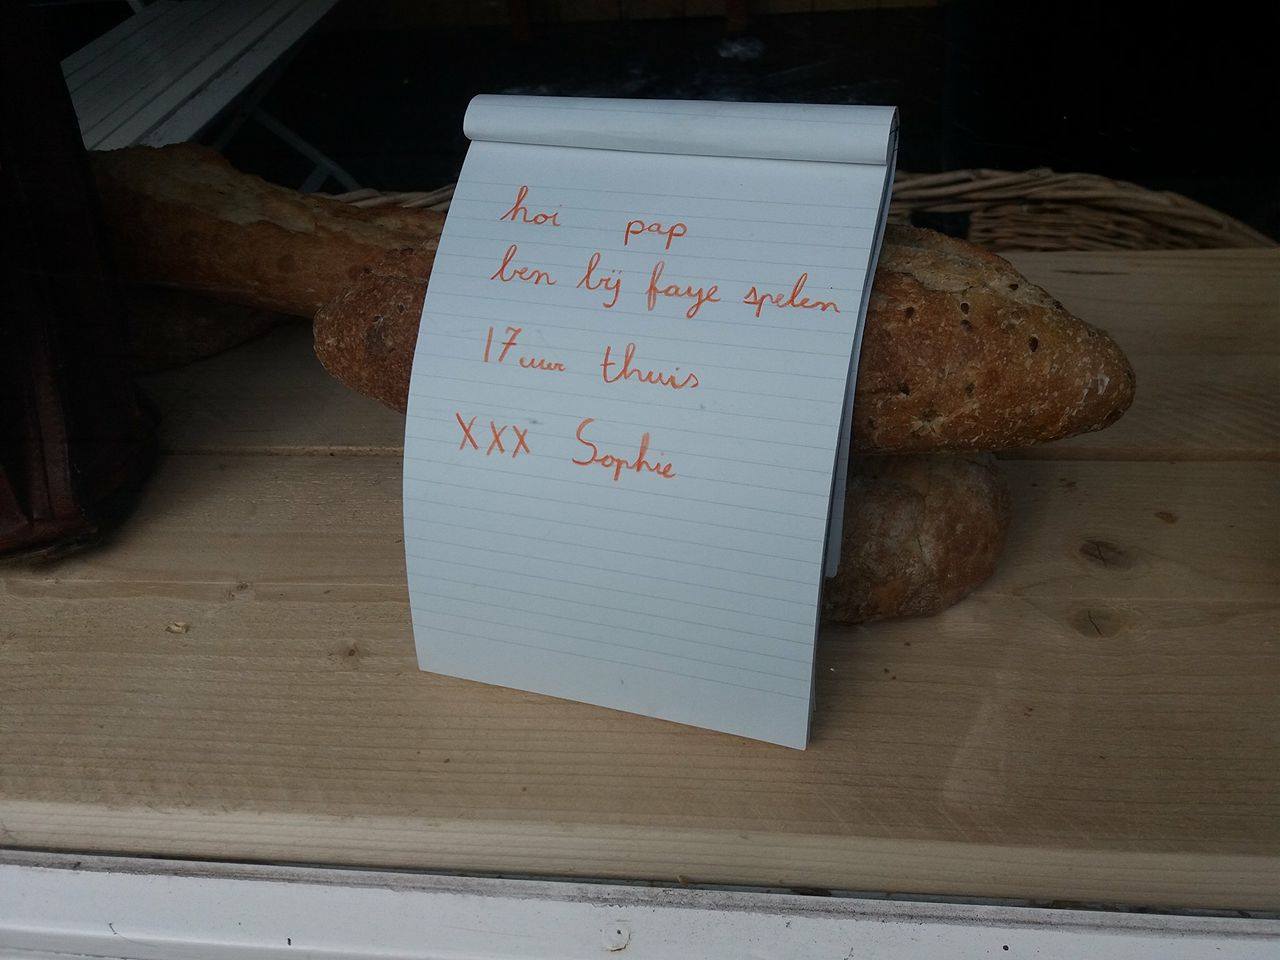 hoi pap
ben bij faye spelen
17 uur thuis
XXX Sophie